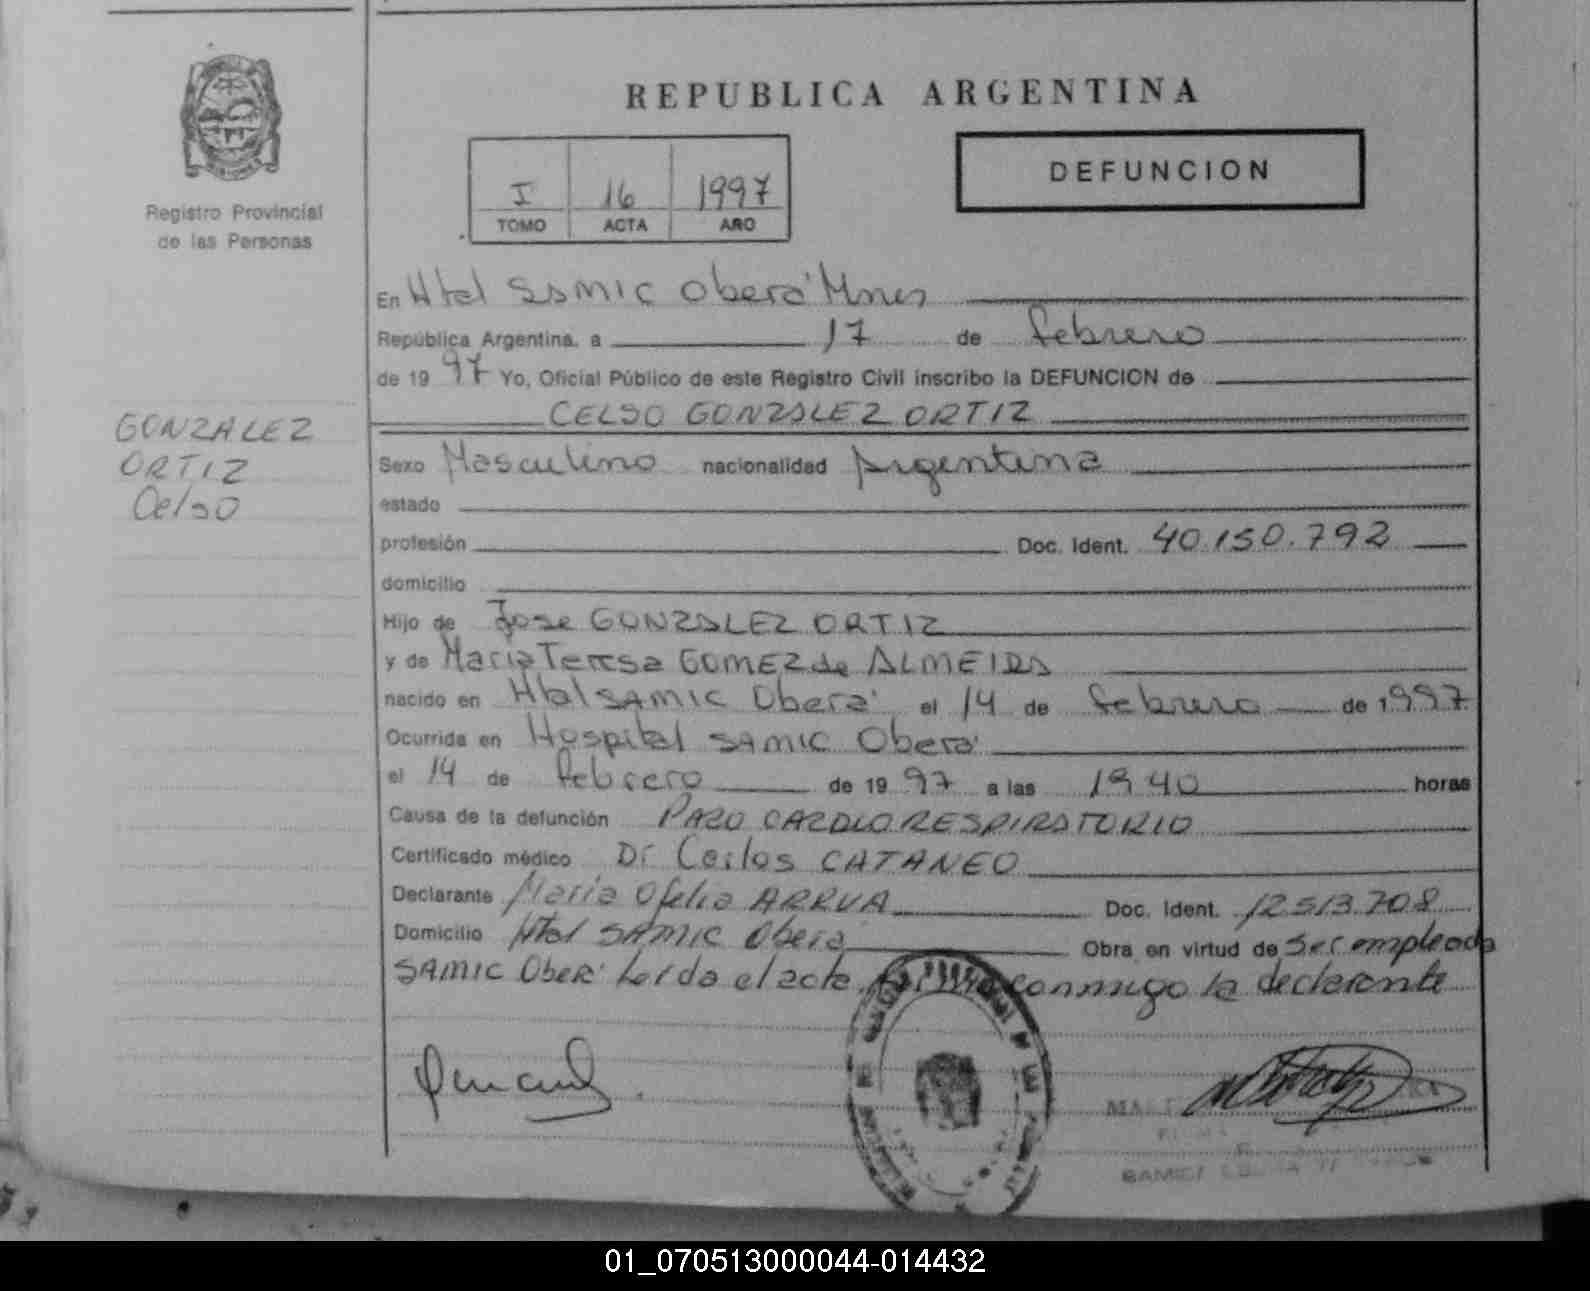 REPUBLICA ARGENTINA
DEFUNCION
I 16 1997
TOMO ACTA AÑO
Registro Provincial
de las Personas
En Htal SAMIC Oberá Mnes
República Argentina, a 17 de febrero
de 1997 Yo, Oficial Público de este Registro Civil inscribo la DEFUNCION de
CELSO GONZALEZ ORTIZ
GONZALEZ
ORTIZ
Celso
Sexo Masculino nacionalidad Argentina
estado
profesión Doc. Ident. 40.150.792
domicilio
Hijo de Jose GONZALEZ ORTIZ
y de Maria Teresa GOMEZ de ALMEIDA
nacido en Htal SAMIC Oberá el 14 de febrero de 1997
Ocurrida en Hospital SAMIC Oberá
el 14 de febrero de 1997 a las 19 40 horas
Causa de la defunción PARO CARDIORESPIRATORIO
Certificado médico Dr Carlos CATANEO
Declarante Maria Ofelia ARRUA Doc. Ident. 12.513.708
Domicilio Htal SAMIC Oberá Obra en virtud de ser empleada
SAMIC Ober' Leida el acta conmigo la declarante
01_070513000044-014432